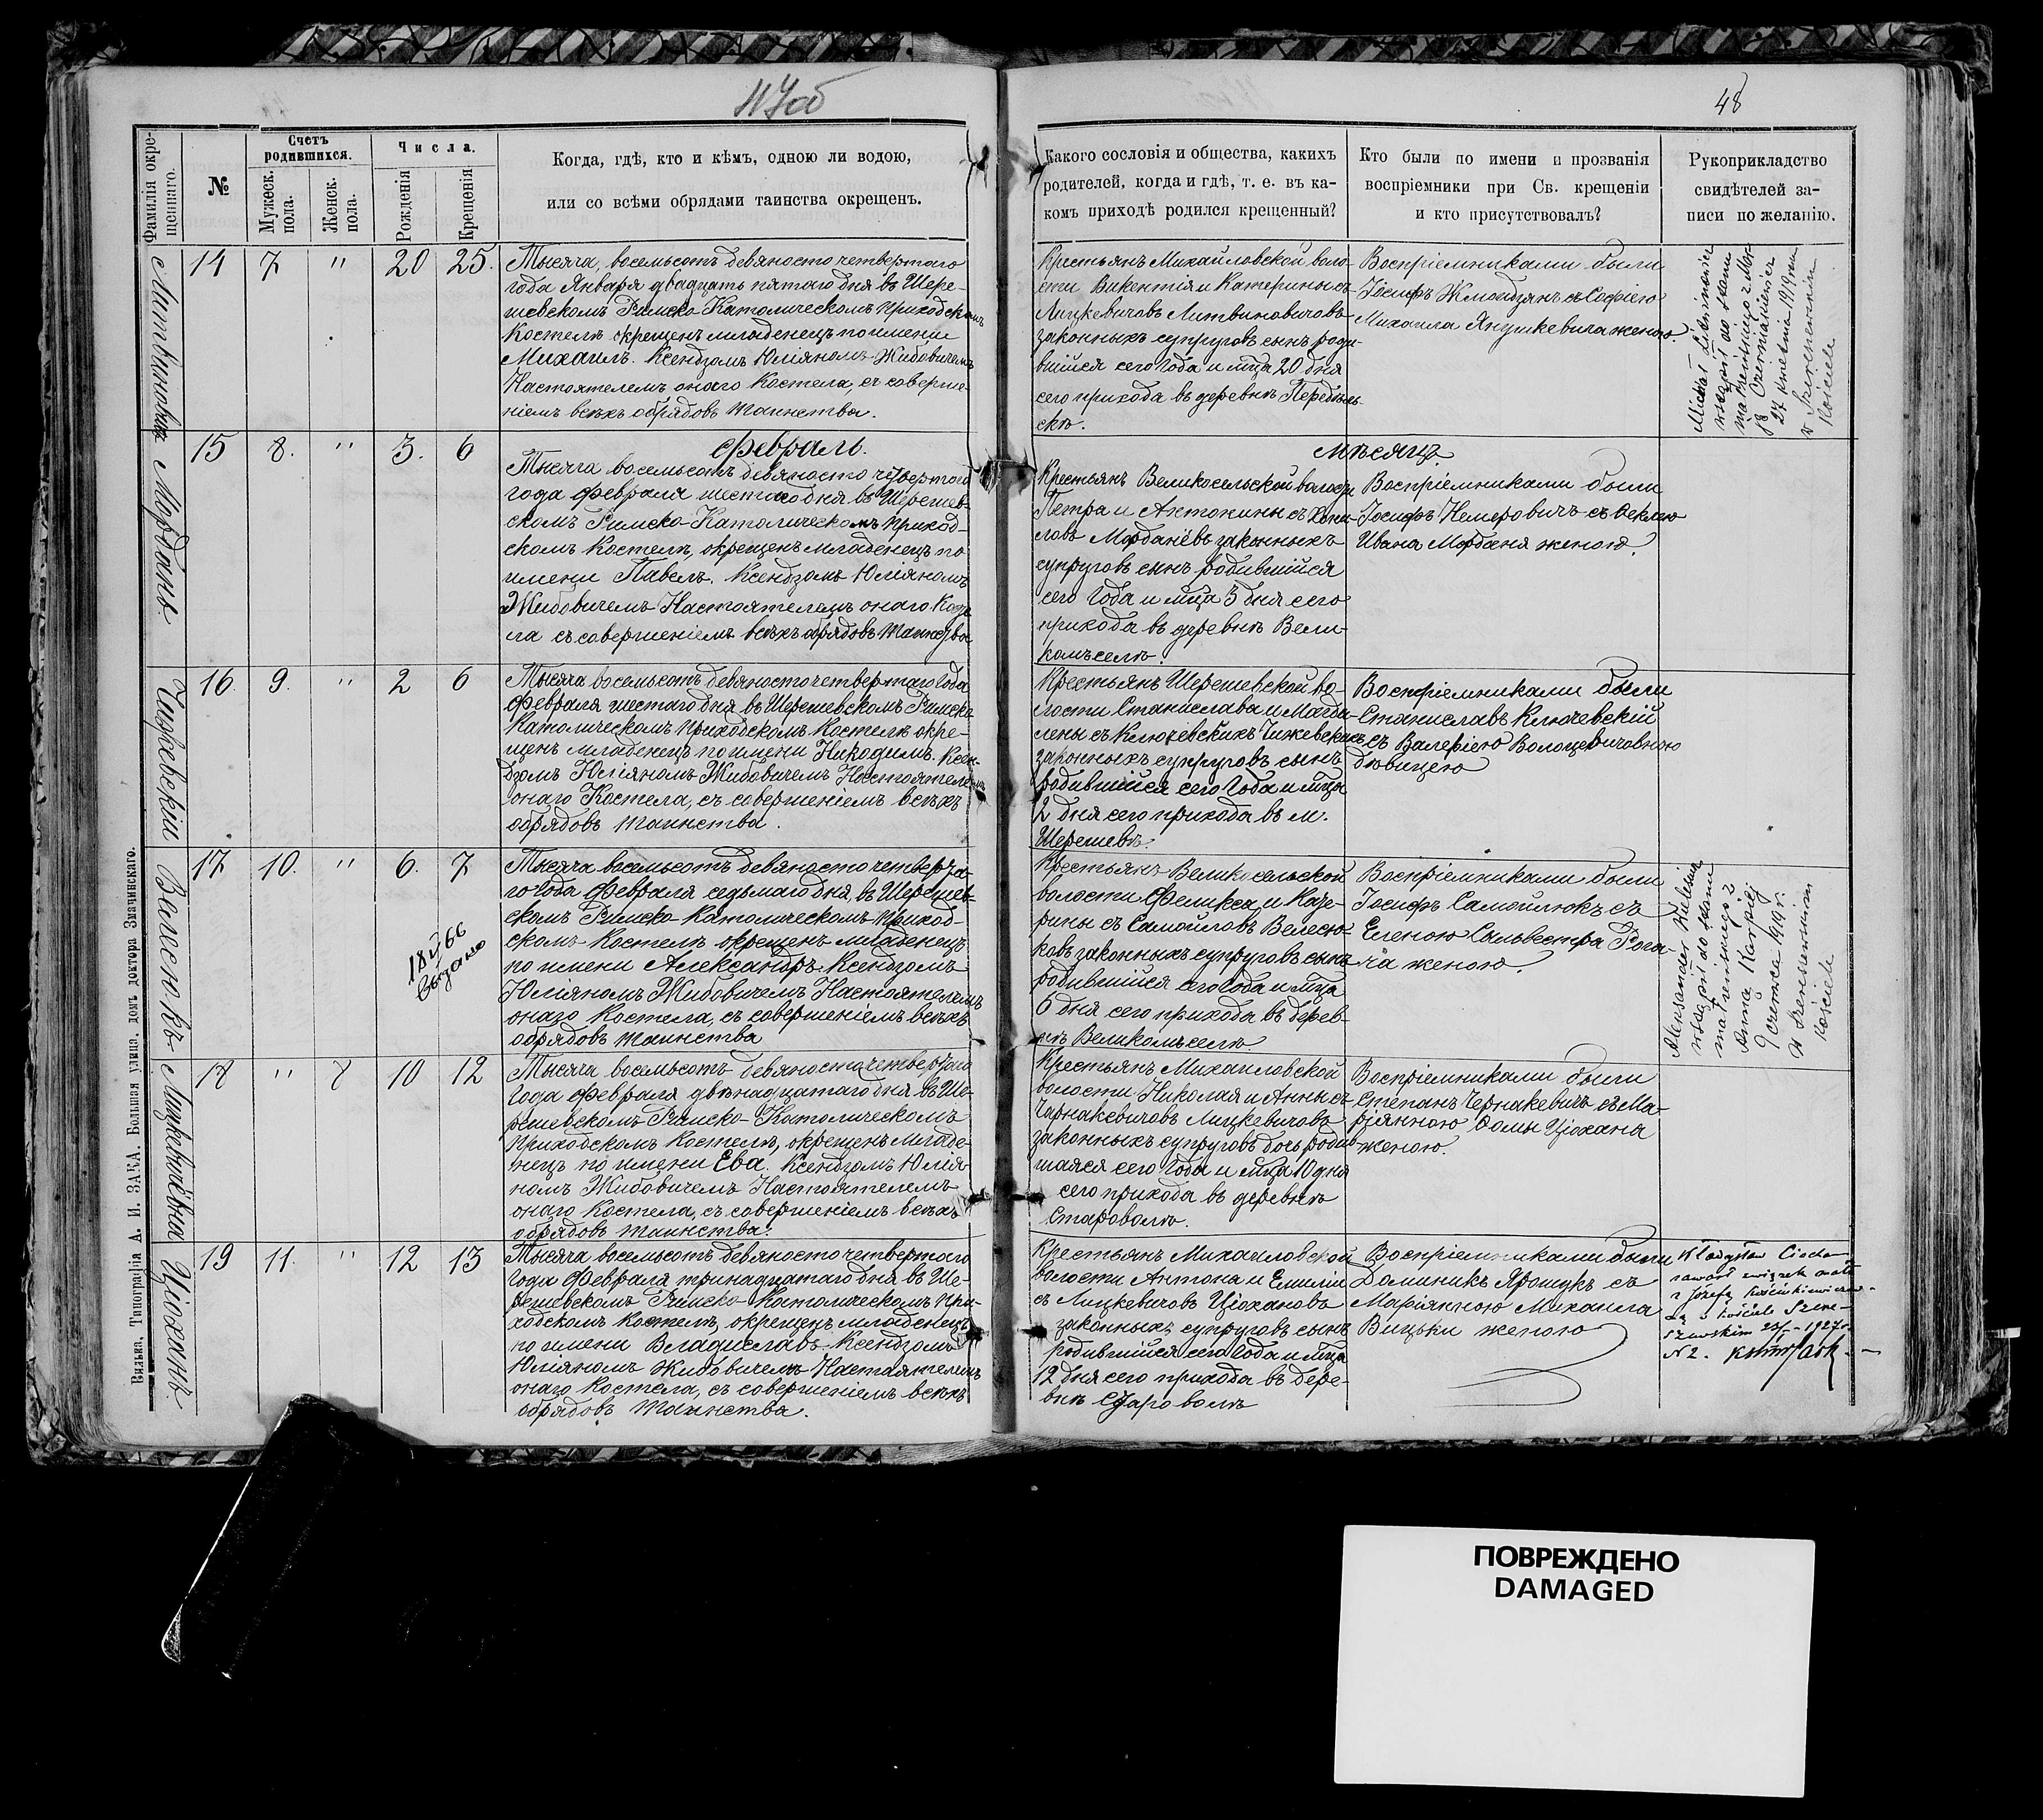 48
Фамилія окре-
щеннаго.
№
Счетъ
родившихся.
Мужеск.
пола.
Женск.
пола.
Числа.
Рожденія
Крещенія
Когда, гдѣ, кто и кѣмъ, одною ли водою,
или со всѣми обрядами таинства окрещенъ.
Какого сословія и общества, какихъ
родителей, когда и гдѣ, т. е. въ ка-
комъ приходѣ родился крещенный?
Кто были по имени и прозванія
воспріемники при Св. крещеніи
и кто присутствовалъ?
Рукоприкладство
свидѣтелей за-
писи по желанію.
14 7 " 20 25.
Тысяча, восемьсотъ девяносто четвертаго
года Января двадцать пятаго дня въ Шере-
шевскомъ Римско-Католическомъ Приходскомъ
Костелѣ окрещенъ младенецъ по имени
Михаилъ. Ксендзомъ Юліяномъ Жибовичемъ
Настоятелемъ онаго Костела, съ соверше-
ніемъ всѣхъ обрядовъ таинства.
Крестьянъ Михайловской воло-
сти Викентія и Катерины съ
Лицкевичовъ Литвиновичовъ
законныхъ супруговъ сынъ роди-
вшійся сего Года и м-ца 20 дня
сего прихода въ деревнѣ
Воспріемниками были
Іосифъ Жмойдзянъ съ Софіею
Михаила Янушкевича женою.
Michał Litwinowicz
wstąpił do stanu
małżeńskiego z
27 kwietnia 1919 r.
w Szereszewskim
Kościele
Морданъ
15 8. " 3. 6
Февраль.
Тысяча восемьсотъ девяносто четвертаго
года Февраля шестаго дня въ Шерешев-
скомъ Римско-Католическомъ Приход-
скомъ Костелѣ, окрещенъ младенецъ по
имени Павелъ. Ксендзомъ Юліяномъ
Жибовичемъ Настоятелемъ онаго Косте-
ла съ совершеніемъ всѣхъ обрядовъ таинства
мѣсяцъ.
Крестьянъ Великосельской волости
Петра и Антонины съ
Морданёвъ законныхъ
супруговъ сынъ родившійся
сего Года и м-ца 3 дня сего
прихода въ деревнѣ Вели-
комъселѣ.
Воспріемниками были
Іосифъ Немеровичъ съ Феклею
ИванаМорданя женою.
Чижевскій
16. 9. " 2 6
Тысяча восемьсотъ девяносто четвертаго Года
Февраля шестаго дня въ Шерешевскомъ Римско-
Католическомъ Приходскомъ Костелѣ окре-
щенъ младенецъ по имени Никодимъ. Ксен-
дзомъ Юліяномъ Жибовичемъ Настоятелемъ
онаго Костела, съ совершеніемъ всѣхъ
обрядовъ таинства.
Крестьянъ Шерешевской во-
лости Станислава и Магда-
лены съ Ключевскихъ Чижевскихъ
законныхъ супруговъ сынъ
родившійся сего Года и м-ца
2 дня сего прихода въ м.
Шерешевѣ.
Воспріемниками были
Станиславъ Ключевскій
съ Валеріею Волоцевичовною
дѣвицею
Велесюкъ
17 10. " 6. 7
выдано
Тысяча восемьсотъ девяносто четверта-
го Года Февраля седьмаго дня, въ Шерешев-
скомъ Римско-Католическомъ Приход-
скомъ Костелѣ окрещенъ младенецъ
по имени Александръ. Ксендзомъ
Юліяномъ Жибовичемъ Настоятелемъ
онаго Костела, съ совершеніемъ всѣхъ
обрядовъ таинства
Крестьянъ Великосельской
волости Феликса и Кате-
рины съ Самойловъ Велесю-
ковъ законныхъ супруговъ сынъ
родившійся сего Года и м-ца
6 дня сего прихода въ дерев-
нѣ Великомъселѣ.
Воспріемниками были
Іосифъ Самойлюкъ съ
Еленою Сильвестра Рога-
ча женою.
wstąpił do stanu
małżeńskiego z
Anną Karpiej
9 czerwca 1919 r.
w Szereszewskim
kościele
Лицкевичовна
18 " 8 10 12
Тысяча восемьсотъ девяносто четвертаго
Года Февраля двѣнадцатаго дня въ Ше-
решевскомъ Римско-Католическомъ
Приходскомъ Костелѣ, окрещенъ младе-
нецъ по имени Ева. Ксендзомъ Юлія-
номъ Жибовичемъ Настоятелемъ
онаго Костела, съ совершеніемъ всѣхъ
обрядовъ таинства.
Крестьянъ Михайловской
волости Николая и Анны съ
Чарнакевичовъ Лицкевичовъ
законныхъ супруговъ дочь родив-
шаяся сего Года и м-ца 10 дня
сего прихода въ деревнѣ
Староволѣ.
Воспріемниками были
Степанъ Чернакевичъ съ Ма-
ріянною Фомы Цюхана
женою.
Цюханъ
19 11. " 12 13
Тысяча восемьсотъ девяносто четвертаго
Года Февраля тринадцатаго дня въ Ше-
решевскомъ Римско-Католическомъ При-
ходскомъ Костелѣ, окрещенъ младенецъ
по имени Владиславъ. Ксендзомъ
Юліяномъ Жибовичемъ Настоятелемъ
онаго Костела, съ совершеніемъ всѣхъ
обрядовъ таинства.
Крестьянъ Михайловской
волости Антона и Емиліи
съ Лицкевичовъ Цюхановъ
законныхъ супруговъ сынъ
родившійся сего Года и м-ца
12 дня сего прихода въ дере-
внѣ Староволѣ
Воспріемниками были
Доминикъ Ярошукъ съ
Маріянною Михаила
Вицьки женою
Władysław Ciochan
zawarł związek małż.
z Józefą
w kościele Szere-
szewskim 1927 r.
N 2.
Вильна, Типографія А. И. ЗАКА. Большая улица, домъ доктора Значинскаго.
ПОВРЕЖДЕНО
DAMAGED